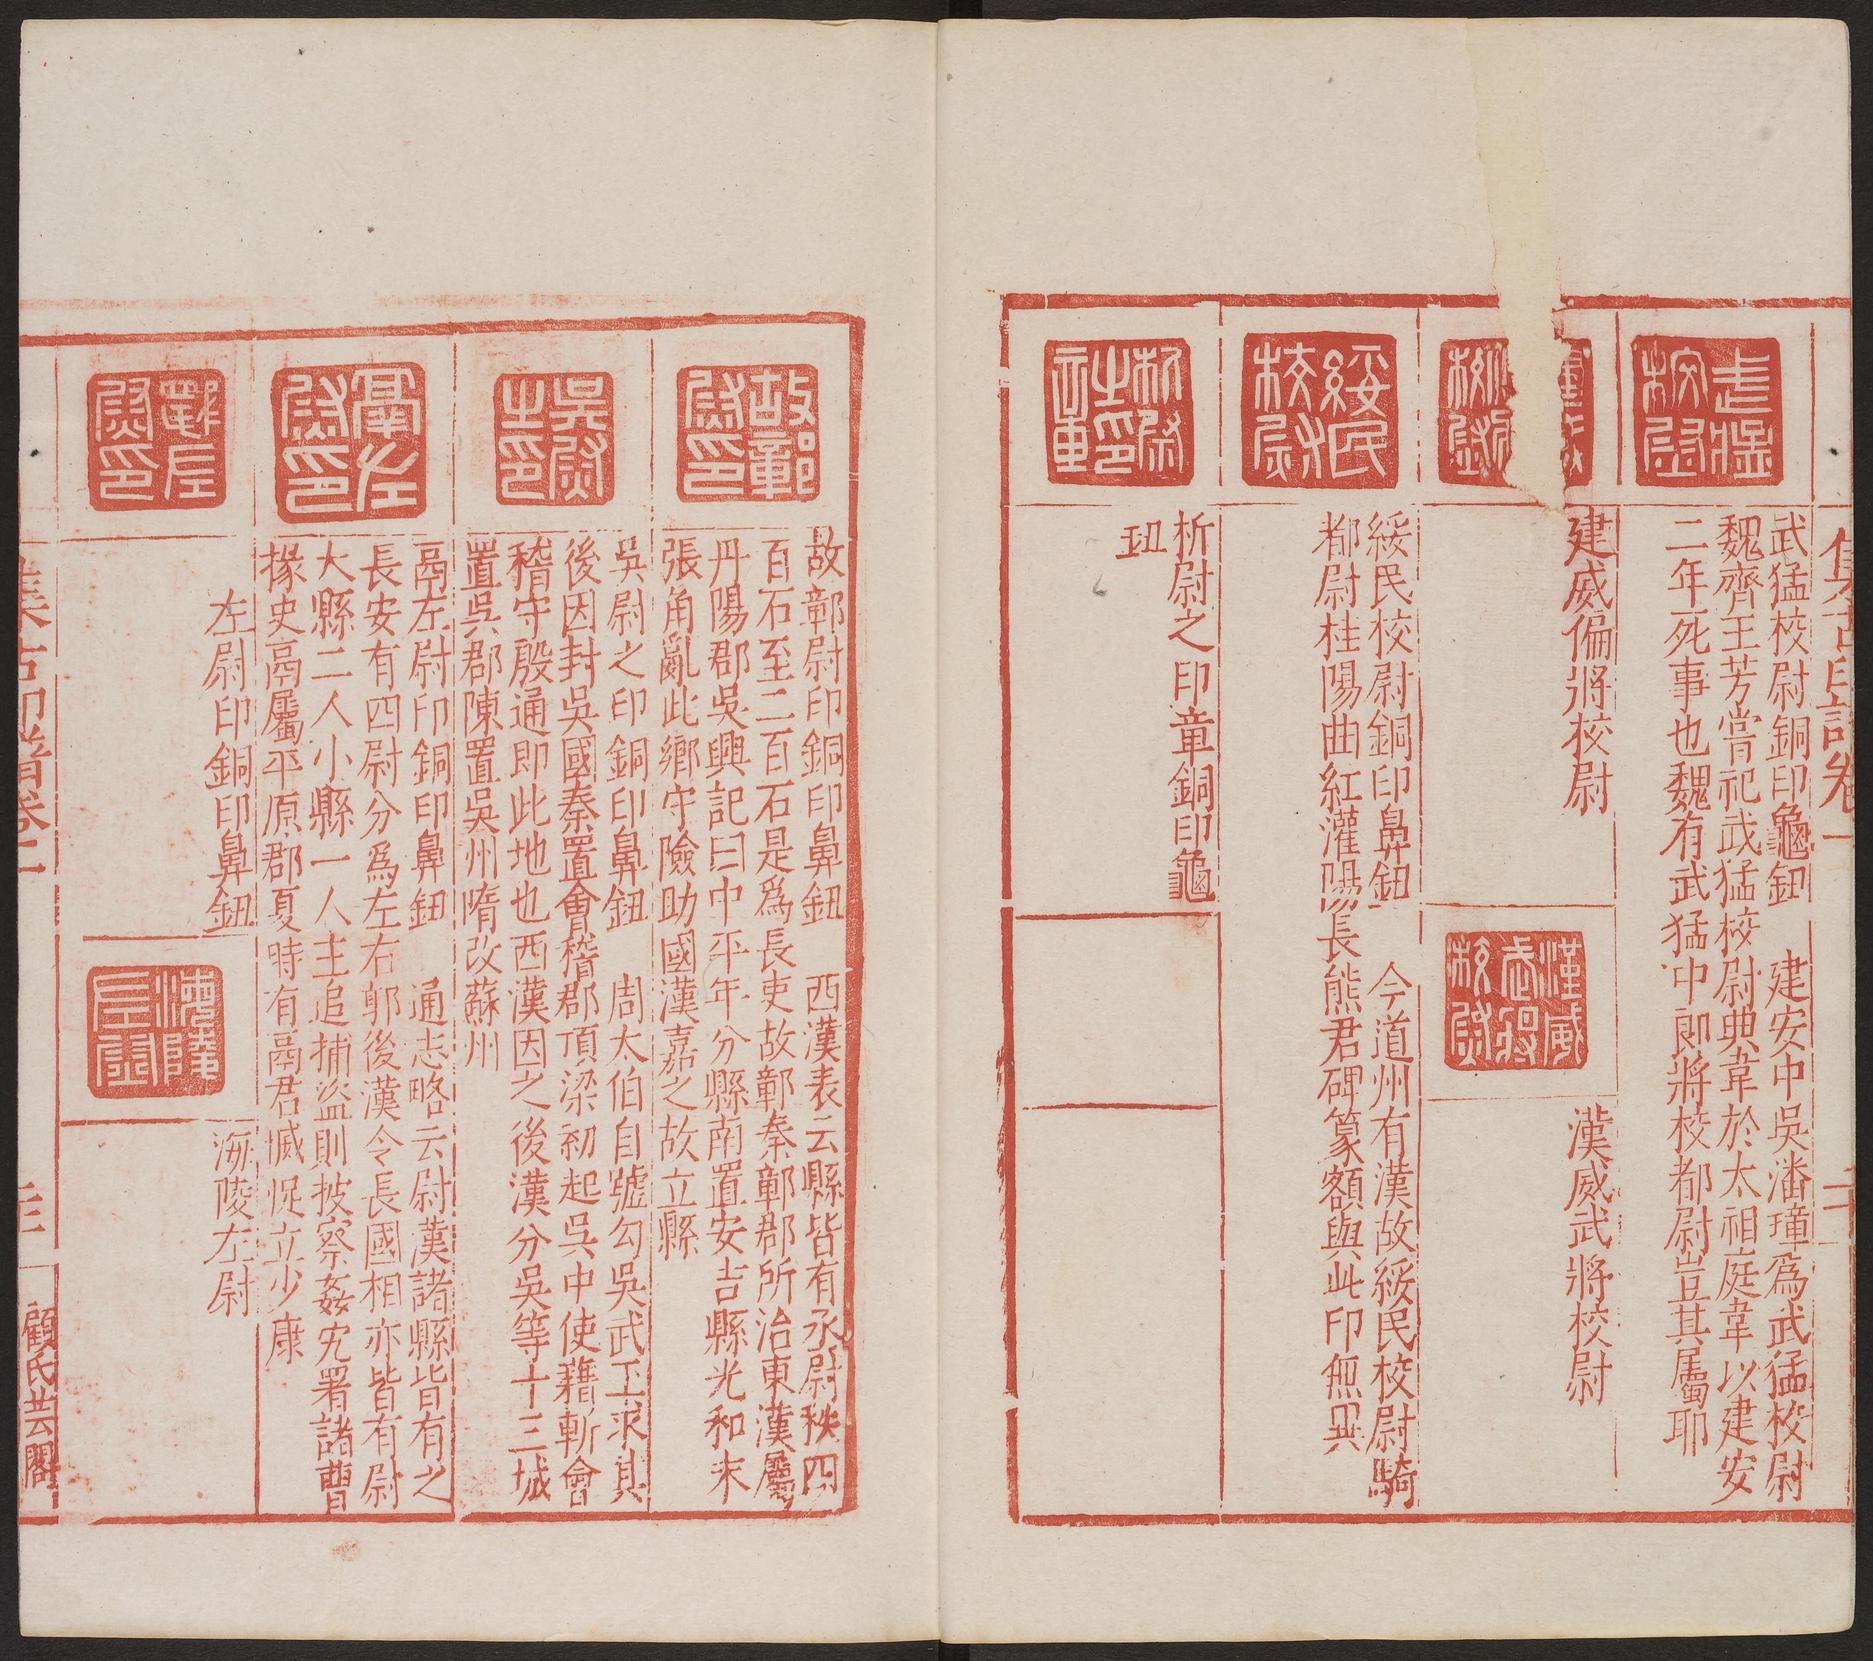 武猛校尉銅印龜鈕　建安中吳潘璋爲武猛校尉
魏齊王芳嘗祀武猛校尉典韋於太祖庭韋以建安
二年死事也魏有武猛中郎將校都尉豈其屬耶
建威偏將校尉
漢威武將校尉
綏民校尉銅印鼻鈕　今道州有漢故綏民校尉騎
都尉桂陽曲紅灌陽長熊君碑篆額與此印無異
析尉之印章銅印龜
鈕
故鄣尉印銅印鼻鈕　西漢表云縣皆有丞尉秩四
百石至二百石是爲長吏故鄣秦鄣郡所治東漢屬
丹陽郡吳興記曰中平年分縣南置安吉縣光和末
張角亂此鄉守險助國漢嘉之故立縣
吳尉之印銅印鼻鈕　周太伯自號勾吳武王求其
後因封吳國秦置會稽郡項梁初起吳中使藉斬會
稽守殷通即此地也西漢因之後漢分吳等十三城
置吳郡陳置吳州隋改蘇州
鬲左尉印銅印鼻鈕　通志略云尉漢諸縣皆有之
長安有四尉分爲左右部後漢令長國相亦皆有尉
大縣二人小縣一人主追捕盜則披察姦宄署諸曹
掾史鬲屬平原郡夏時有鬲君滅浞立少康
左尉印銅印鼻鈕
海陵左尉
顧氏芸閣